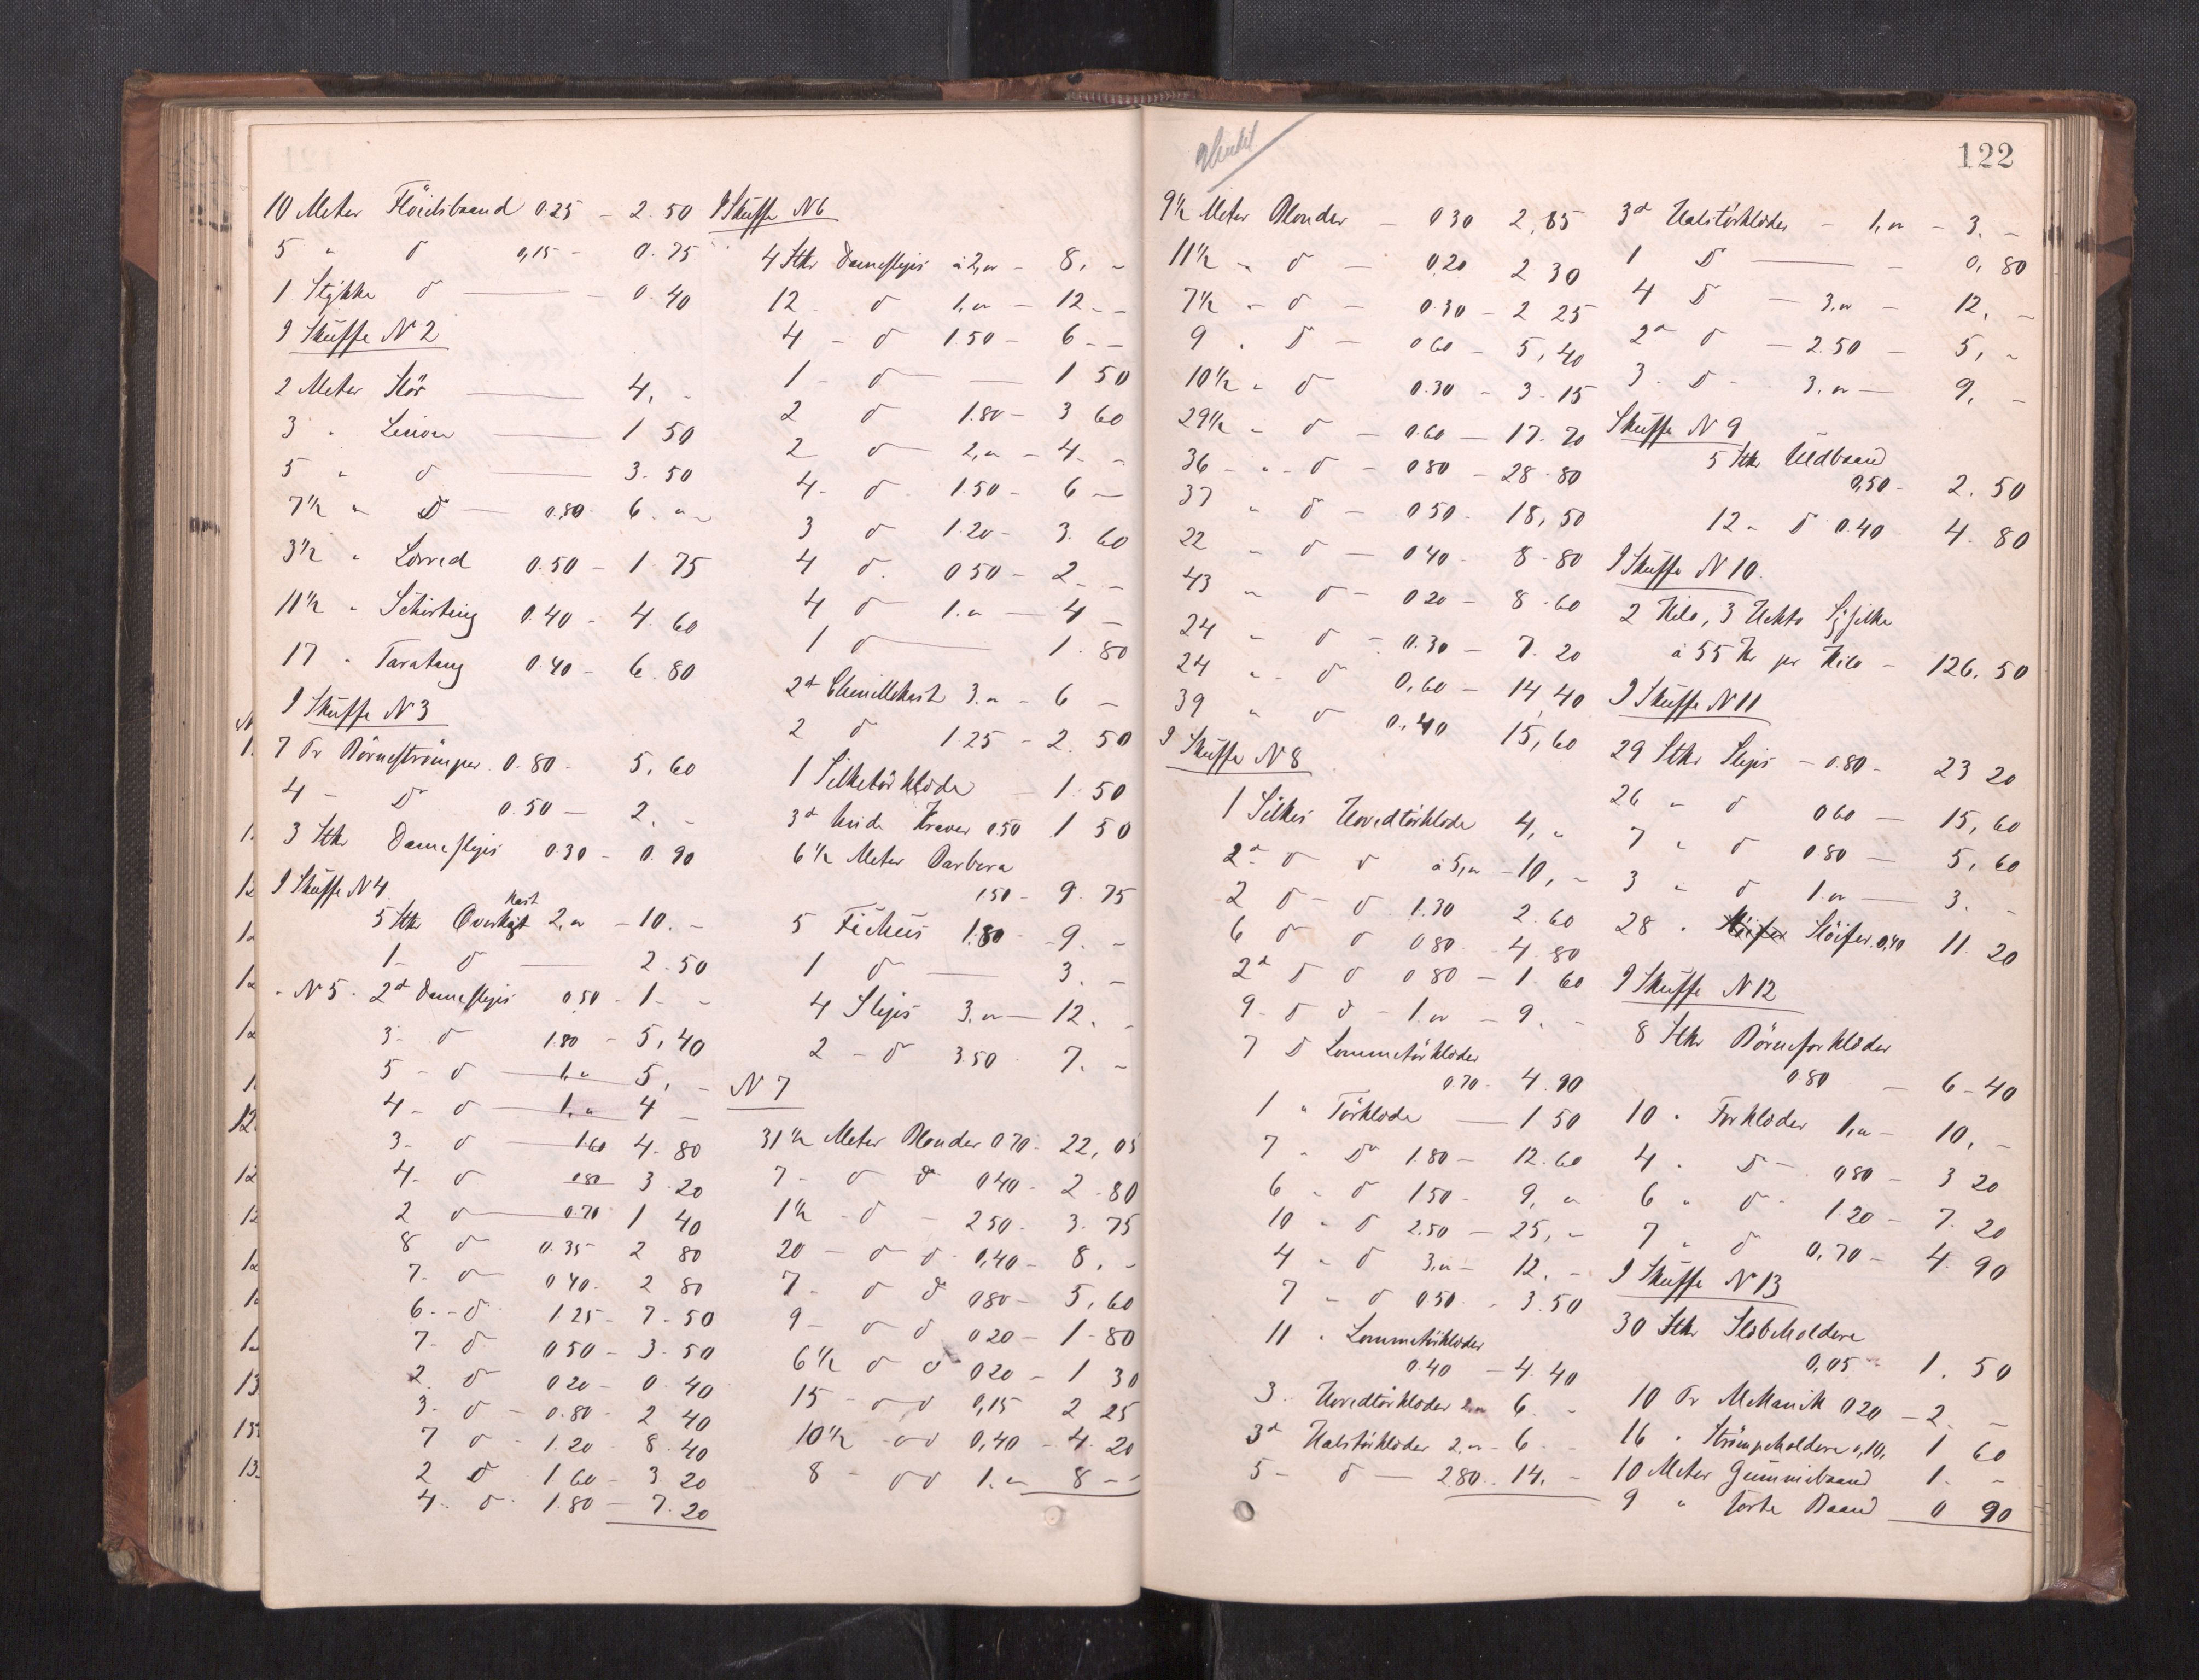 10 Meter Flöielsbaand 0.25 – 2.50
5 " d 0,15 – 0.75
1 Stykke d – 0.40
I Skuffe N 2
2 Meter Flör 4, -
3 " Linon 1 50
5 " d 3.50
7½ " D – 0.80 6. " -
3½ " Lærred 0.50 – 1.75
11½ " Schirting 0.40 – 4.60
17 " Taratang 0.40 – 6.80
I Skuffe N 3
7 Pr Börneströmper 0.80 – 5,60
4 – D 0.50 – 2. -
3 Stkr Dameslips 0.30 – 0.90
I Skuffe N 4
5 Stkr Overkast 2,00 – 10. -
1 – d 2.50
" N 5 – 2 d Dameslips 0.50 – 1 - -
3 – d 1.80 – 5,40
5 – d 1," 5, -
4 – d 1," 4 -
3 – d 1.60 4.80
4 – d 0.80 3.20
2 d 0.70 1 40
8 d 0.35 2 80
7 – d 0.40 – 2 80
6 – d 1.25 – 7.50
7 – d 0.50 – 3.50
2 d 0.20 – 0.40
3 – d – 0.80 – 2 40
7 d – 1.20 8.40
2 d 1.60 – 3.20
4 – d 1.80 – 7.20
I Skuffe N 6
4 Stkr Dameslips à 2,00 – 8, -
12 d 1,00 – 12 - -
4 – d 1.50 – 6 - -
1 – d 1 50
2 d 1.80 – 3 60
2 d 2,00 – 4 - -
4 – d 1.50 – 6 -
3 d 1.20 – 3.60
4 d 0.50 – 2 - -
4 d 1.00 – 4 -
1 d 1.80
2 d Chenillekast 3.00 – 6 -
2 d 1.25 – 2.50
1 Silketörklæde 1.50
3 d hvide Kraver 0.50 1 50
6½ Meter Barbera
1.50 – 9.75
5 Fichus 1.80 – 9. -
1 d 3. -
4 Slips 3.00 – 12. -
2 – d 3.50 7. -
N 7
31½ Meter Blonder 0.70 – 22,05
7 – d d 0.40 – 2.80
1½ – d – 2.50 – 3.75
20 – d d 0,40 – 8. -
7 – d d 0.80 – 5,60
9 – d d 0.20 – 1.80
6½ d d 0.20 – 1 30
15 – d d 0,15 2 25
10½ – d d 0,40 – 4.20
8 – d d 1.00 8 - -
122
9½ Meter Blonder – 0.30 2,85
11½ " d – 0.20 2 30
7½ " d – 0.30 – 2 25
9 " D – 0.60 – 5,40
10½ " d 0.30 – 3.15
29½ " d – 0.60 – 17.70
36 – " – d – 0.80 – 28.80
37 " d – 0.50 – 18,50
22 " d – 0.40 – 8.80
43 " d – 0.20 – 8.60
24 " d – 0.30 – 7.20
24 " d 0,60 – 14,40
39 " d 0,40 15,60
I Skuffe N 8
1 Silkes Hovedtörklæde 4, "
2 d d d à 5,00 – 10, -
2 d – d 1.30 2.60
6 d d 0.80 – 4.80
2 d D d 0.80 – 1.60
9 – d d – 1.00 – 9. -
7 D Lommetörklæder
0.70 – 4.90
1 " Törklæde 1 50
7 " D 1.80 – 12.60
6 " d 1.50 – 9, "
10 " d 2.50 – 25, -
4 " d 3,00 – 12, -
7 " d 0.50 – 3.50
11 " Lommetörklæder
0.40 – 4.40
3 Hovedtörklæder 2.00 6. -
3 d Halstörklæder 2,00 – 6 -
5 – d – 2.80 – 14. -
3 d Halstörklæder – 1,00 – 3. -
1 D – 0,80
4 D – 3,00 – 12, -
2 d d – 2.50 – 5, -
3 – D – 3.00 – 9, -
Skuffe N 9
5 Stkr Uldbaand
0,50 – 2.50
12 " D 0.40 4.80
I Skuffe N 10
2 Kilo, 3 Hekto Sysilke
à 55 Kr pr Kilo – 126.50
I Skuffe N 11
29 Stkr Slips – 0.80 – 23 20
26 " d 0.60 – 15,60
7 " d 0.80 – 5,60
3 " d 1.00 – 3. -
28 " Slöifer 0,40 11 20
I Skuffe N 12
8 Stkr Börneforklæder
0.80 – 6-40
10 " Forklæder 1,00 – 10, -
4 " D – 0.80 – 3 20
6 " d – 1.20 – 7.20
7 " d 0,70 – 4.90
I Skuffe N 13
30 Stkr Slæbeholdere
0,05 – 1.50
10 Pr Mekanik 0.20 – 2. -
16 " Strömpeholdere 0,10, 1 60
10 Meter Gummibaand 1. -
9 " sorte Baand 0 90